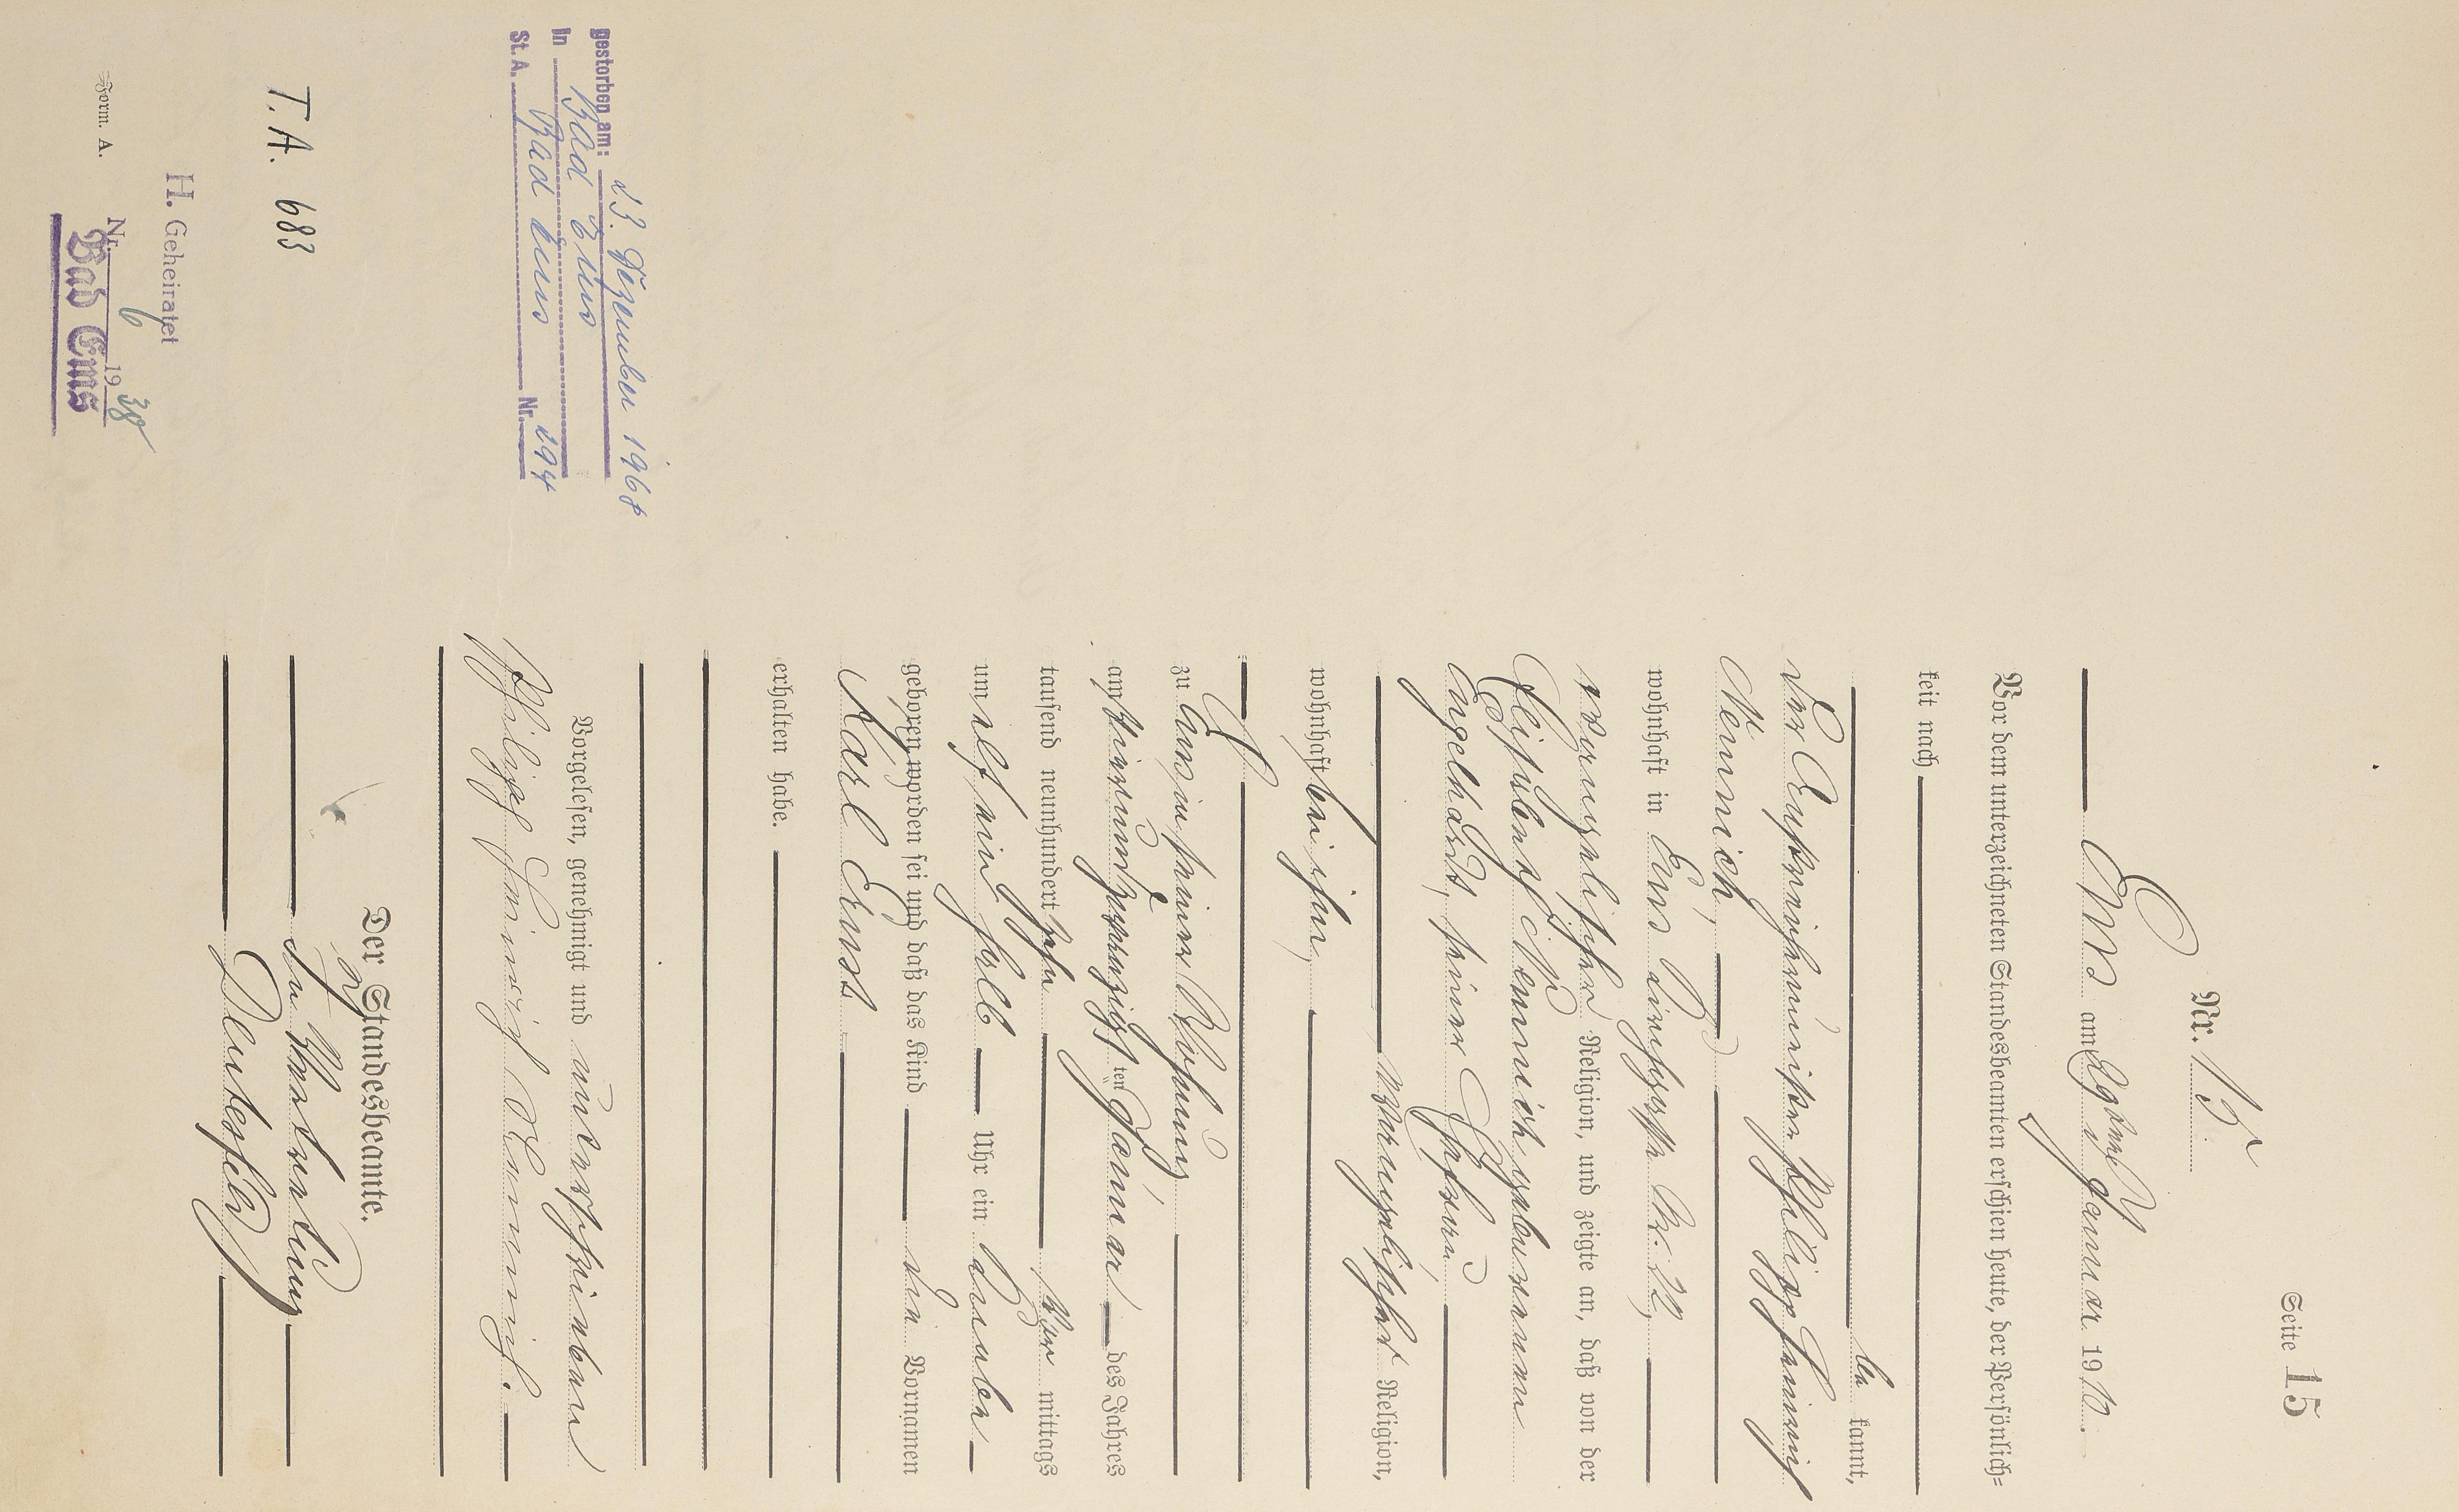 Seite 15
Nr. 15.
Ems am 29ten Januar 1910.
Vor dem unterzeichneten Standesbeamten erschien heute, der Persönlich=
keit nach
be kannt,
der Philipp Heinrich
Mennich,
wohnhaft in Ems Nr. 32,
evangelischer Religion, und zeigte an, daß von der
Mennich geborenen
Engelhardt, seiner Ehefrau,
evangelischer Religion,
wohnhaft bei ihm,
zu Ems, in seiner Wohnung,
am Januar des Jahres
tausend neunhundert zehn Vor mittags
um elf ein halb Uhr ein Knabe
geboren worden sei und daß das Kind den Vornamen
Karl Ernst
erhalten habe.
Vorgelesen, genehmigt und unterschrieben
Philipp Heinrich Mennich.
Der Standesbeamte.
In Vertretung
gestorben am: 23. Dezember 1968
in Bad Ems
St. A. Bad Ems Nr. 294
T. A. 683
H. Geheiratet
Nr. 6 1938
Bad Ems
Form. A.